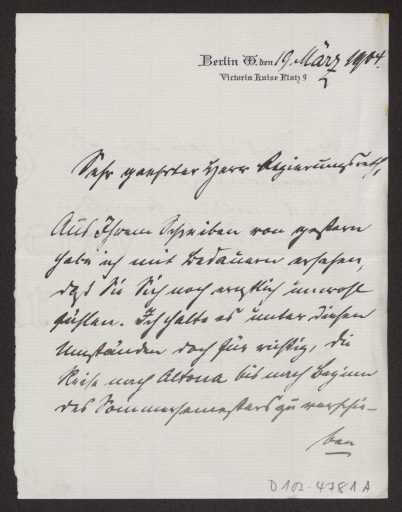 Berlin W. den 19. März 1904.
Victoria Luise Platz 9
Sehr geehrter Herr Regierungsrath,
Aus Ihrem Schreiben von gestern
habe ich mit Bedauern ersehen,
daß Sie Sich noch ernstlich unwohl
fühlen. Ich halte es unter diesen
Umständen doch für richtig, die
Reise nach Altona bis nach Beginn
des Sommersemesters zu verschie-
ben
D 102-4781A